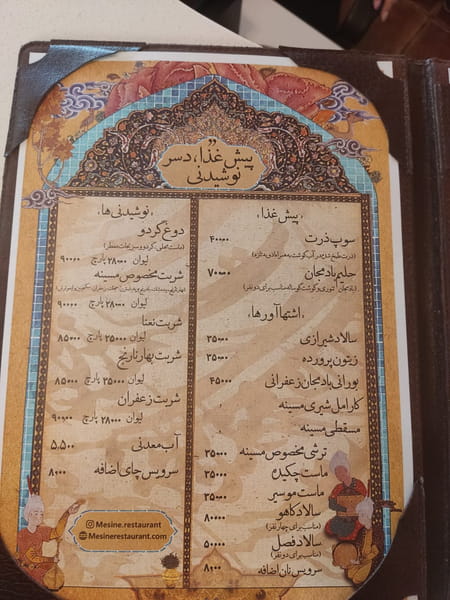 پیش غذا، دسر
نوشیدنی
، پیش غذا ،
سوپ ذرت ۴۰۰۰۰
حلیم بادمجان ۷۰۰۰۰
، اشتهاآورها ،
سالاد شیرازی ۲۵۰۰۰
زیتون پرورده ۳۵۰۰۰
بورانی بادمجان زعفرانی ۴۵۰۰۰
کارامل شیری مسینه
مسقطی مسینه
ترشی مخصوص مسینه ۲۵۰۰۰
ماست چکیده ۲۵۰۰۰
ماست موسیر ۲۵۰۰۰
سالاد کاهو ۸۰۰۰۰
(مناسب برای چهار نفر)
سالاد فصل ۵۰۰۰۰
(مناسب برای دو نفر)
سرویس نان اضافه ۸۰۰۰
، نوشیدنی ها ،
دوغ گردو
(ماست محلی، گردو و سبزیجات معطر)
لیوان ۲۸۰۰۰ پارچ ۹۰۰۰۰
شربت مخصوص مسینه
لیوان ۲۸۰۰۰ پارچ ۹۰۰۰۰
شربت نعنا
لیوان ۲۵۰۰۰ پارچ ۸۵۰۰۰
شربت بهارنارنج
لیوان ۲۵۰۰۰ پارچ ۸۵۰۰۰
شربت زعفران
لیوان ۲۸۰۰۰ پارچ ۹۰۰۰۰
آب معدنی ۵,۵۰۰
سرویس چای اضافه ۸۰۰۰
Mesine.restaurant
Mesinerestaurant.com